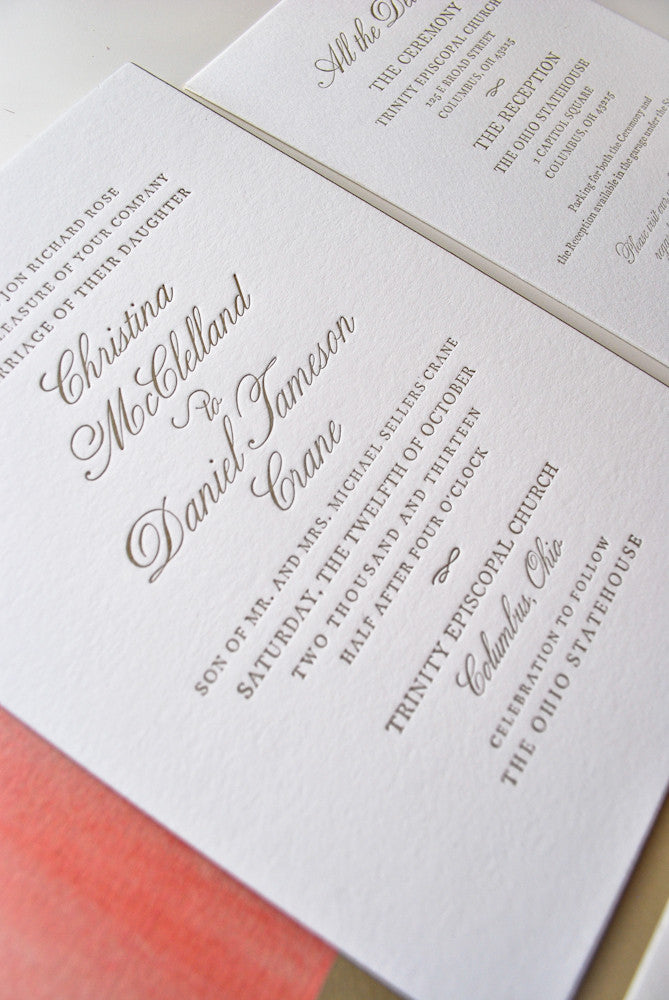 JON RICHARD ROSE
PLEASURE OF YOUR COMPANY
MARRIAGE OF THEIR DAUGHTER
Christina
McClelland
to
Daniel Jameson
Crane
SON OF MR. AND MRS. MICHAEL SELLERS CRANE
SATURDAY, THE TWELFTH OF OCTOBER
TWO THOUSAND AND THIRTEEN
HALF AFTER FOUR O'CLOCK
TRINITY EPISCOPAL CHURCH
Columbus, Ohio
CELEBRATION TO FOLLOW
THE OHIO STATEHOUSE
All the
THE CEREMONY
TRINITY EPISCOPAL CHURCH
125 E BROAD STREET
COLUMBUS, OH 43215
THE RECEPTION
THE OHIO STATEHOUSE
1 CAPITOL SQUARE
COLUMBUS, OH 43215
Parking for both the Ceremony and
the Reception available in the garage under
Please visit